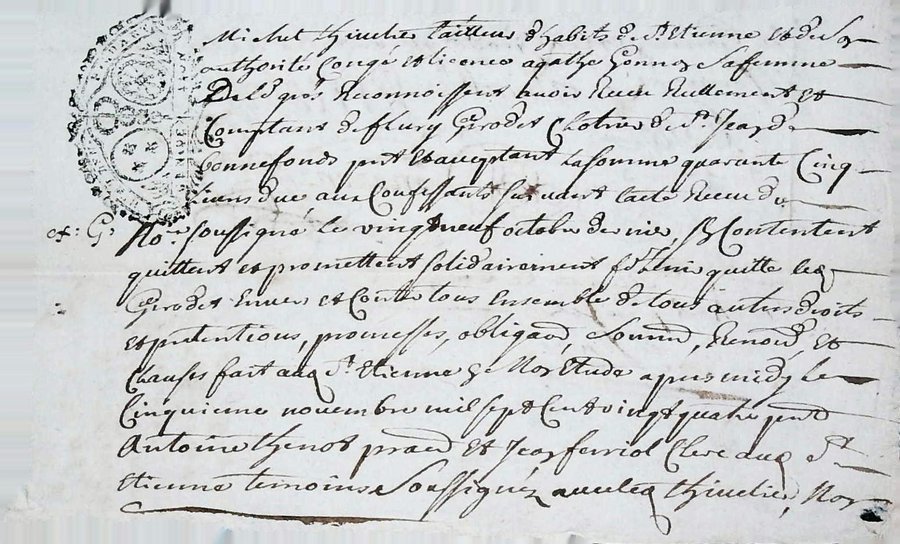 Michel thiuelier tailleur d'habits de St Etienne et de Son
authorité Congé et licence agathe Gonnoz Sa femme
De Leˢ gres Reconnoissent auoir Receu Reellement et
Comptant de fleury Girodet Clotrier de St Jean de
bonnefonds pnt et acceptant La Somme quarante Cinq
liures due aux Confessants Suiuant l'acte Receu du
ex: G: No.re Soussigné le vingt neuf octobre dernier, Se Contentent
quittent et promettent solidairement f.re tenir quitte led
Girodet Enuers et Contre tous Ensemble de tous autres droits
et pretentions, promesses, obligaõ, Soumiõ, Renoñ, Et
Clauses fait auq St Etienne Ez Nor Etude apres midy le
Cinquieme novembre mil Sept Cent vingt quatre pnt
Antoine thenot praen Et Jean ferriol Clerc auq St
Etienne temoins Soussignéz auec led thiuelier, Nor